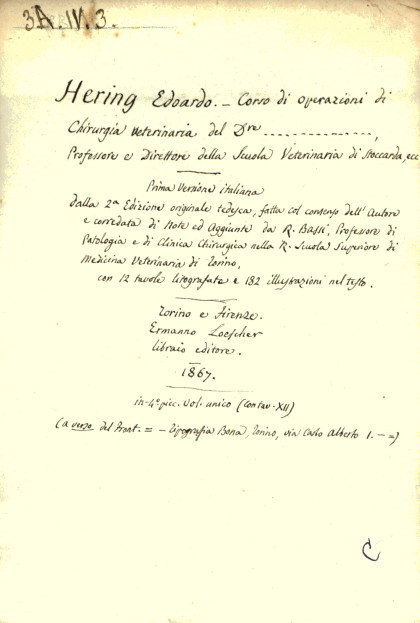 3A.IV.3.
Hering Edoardo. – Corso di operazioni di
Chirurgia veterinaria del Dre ..............,
Professore e Direttore della Scuola Veterinaria di Stoccarda, ecc
Prima Versione italiana
dalla 2a Edizione originale tedesca, fatta col consenso dell'Autore
e corredata di Note ed Aggiunte da R. Bassi, Professore di
Patologia e di Clinica Chirurgica nella R. Scuola Superiore di
Medicina Veterinaria di Torino,
con 12 tavole litografate e 182 illustrazioni nel testo.
Torino e Firenze.
Ermanno Loescher
libraio editore.
1867.
in-4º picc. vol. unico (con tav. XII)
(a verso del Front. = – Tipografia Bona, Torino, via Carlo Alberto 1. – =)
C